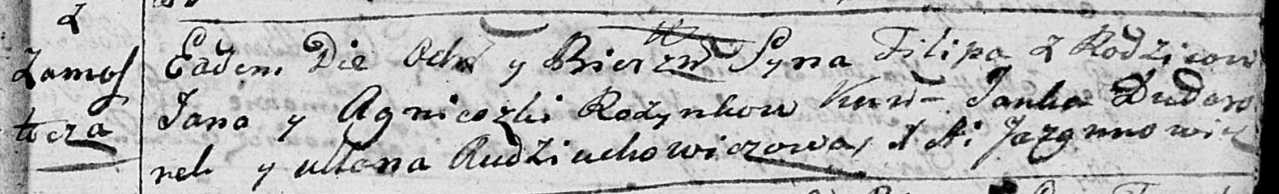 Z
Zamos
tocza
Eadem Die Ochr y Bierzm Syna Filipa z Rodzicow
Jana y Agnieszki Rozynkow Kum Janka Dudaro
nek y Ullana Rudziachowiczowa,